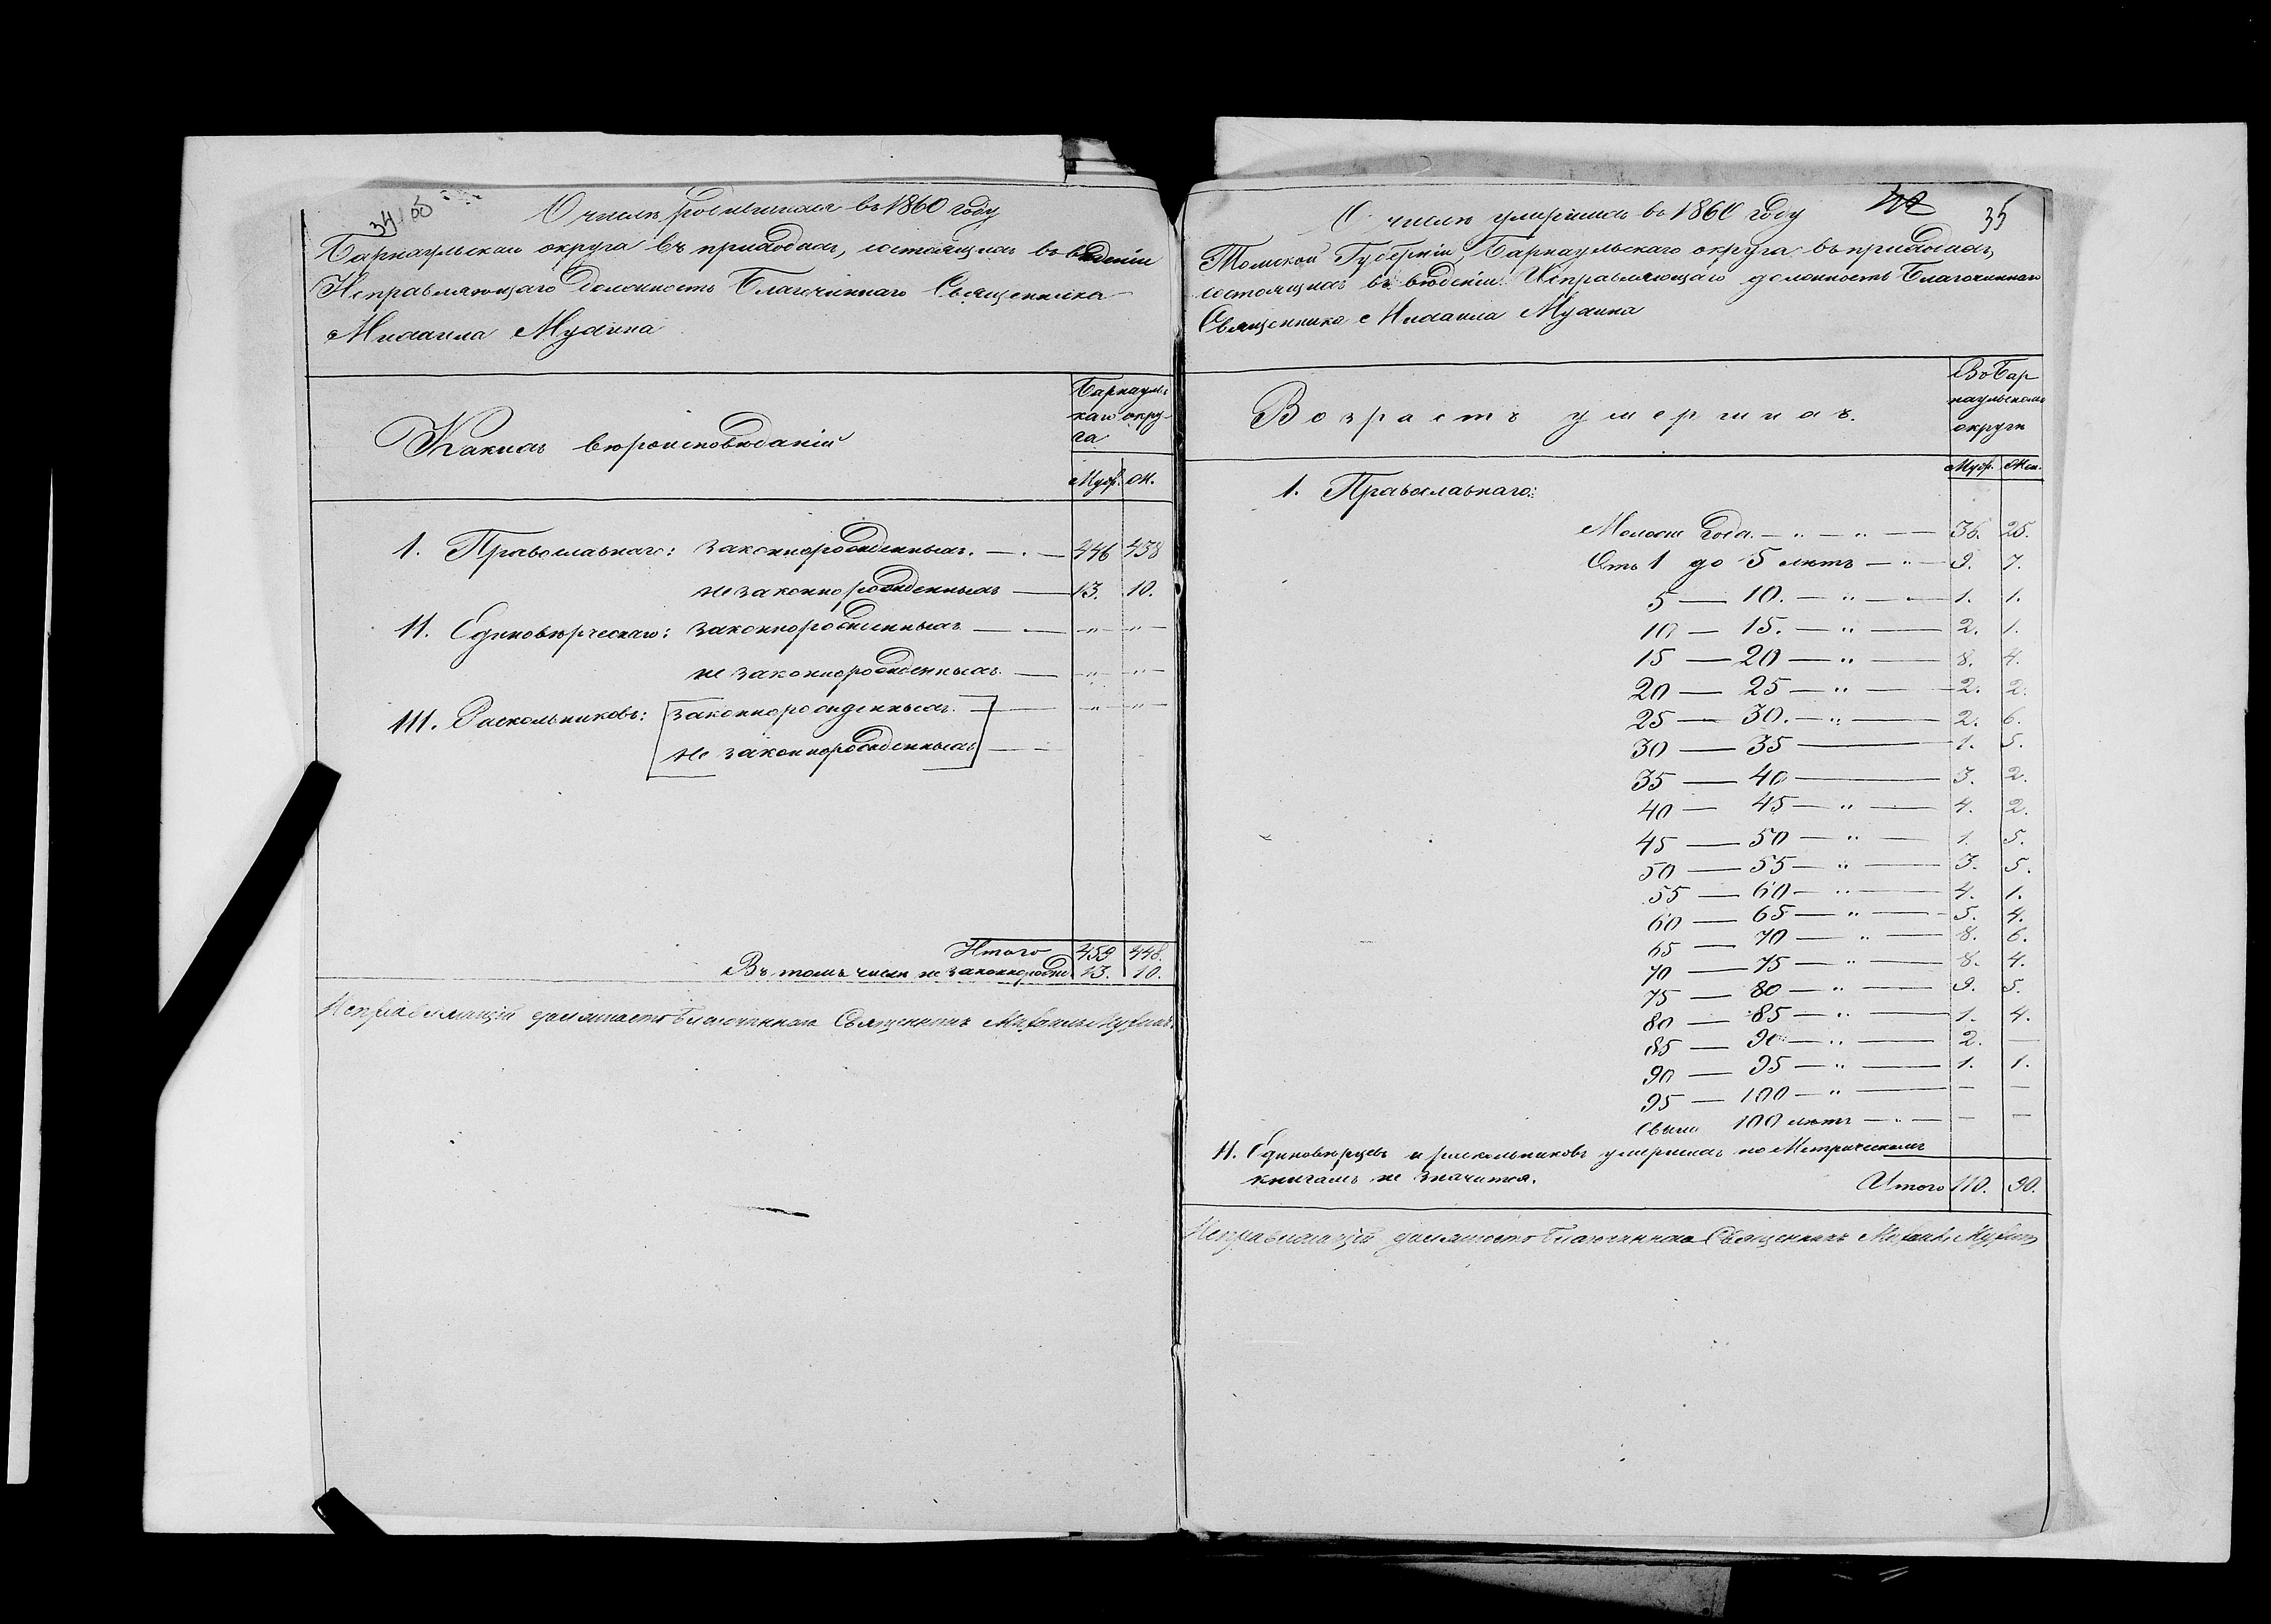 34
О числѣ родившихся въ 1860 году
Барнаульскаго округа въ приходахъ, состоящихъ въ вѣденіи
Исправляющаго Должность Благочиннаго Священника
Михаила Мухина
Какихъ вѣроисповѣданій
Барнауль-
скаго окру-
га
Муж. Ж.
1. Православнаго: законнорожденныхъ. 446 438
не законнорожденныхъ 13. 10.
11. Единовѣрческаго: законнорожденныхъ — " — — " —
не законнорожденныхъ — " — — " —
111. Раскольниковъ: законнорожденныхъ — " — — " —
не законнорожденныхъ
Итого 459 448.
Въ томъ числѣ не законнорожд. 13. 10.
Исправляющій должность Благочиннаго Священникъ Михаилъ Мухинъ.
35
О числѣ умершихъ въ 1860 году
Томской Губерніи, Барнаульскаго округа въ приходахъ,
состоящихъ въ вѣденіи Исправляющаго должность Благочиннаго
Священника Михаила Мухина
Возрастъ умершихъ.
Въ Бар
наульскомъ
округѣ
Муж. Жен.
1. Православнаго:
Моложе Года. — " — " — 36. 25.
Отъ 1 до 5 лѣтъ — " — 9. 7.
5 — 10. — " — 1. 1.
10 — 15. — " — 2. 1.
15 — 20 — " — 8. 4.
20 — 25 — " — 2. 2.
25 — 30. — " — 2. 6.
30 — 35 — 1. 5.
35 — 40 — 3. 2.
40 — 45 — " — 4. 2.
45 — 50 — " — 1. 5.
50 — 55 — " — 3. 5.
55 — 60 — " — 4. 1.
60 — 65 — " — 5. 4.
65 — 70 — " — 8. 6.
70 — 75 — " — 8. 4.
75 — 80 — " — 9. 5.
80 — 85 — " — 1. 4.
85 — 90 — " — 2. —
90 — 95 — " — 1. 1.
95 — 100 — " — — —
Свыше 100 лѣтъ — " — — —
11. Единовѣрцевъ и раскольниковъ умершихъ по Метрическимъ
книгамъ не значится.
Итого 110. 90.
Исправляющій должность Благочиннаго Священникъ Михаилъ Мухинъ